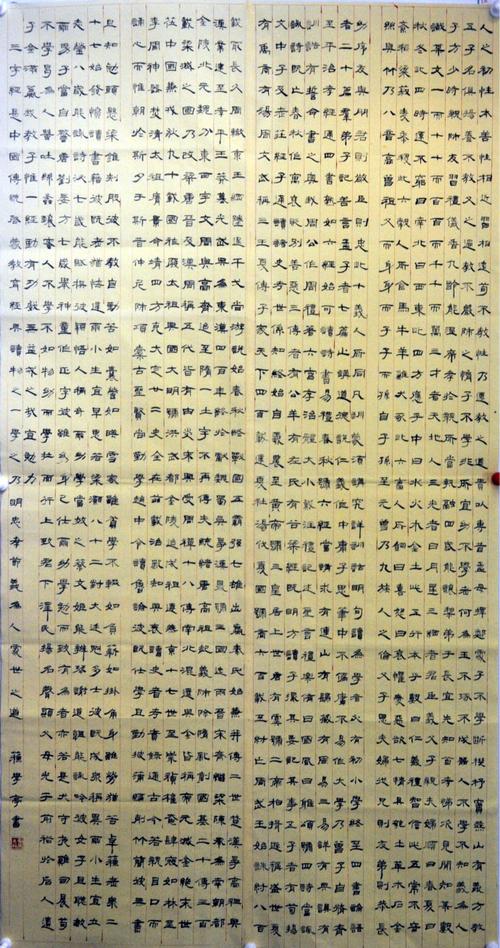 人之初性本善性相近習相遠苟不教性乃遷教之道貴以專昔孟母擇鄰處子不學斷機杼竇燕山有義方教
五子名俱揚養不教父之過教不嚴師之惰子不學非所宜幼不學老何為玉不琢不成器人不學不知義為人
子方少時親師友習禮儀香九齡能溫席孝於親所當執融四歲能讓梨弟于長宜先知首孝弟次見聞知某數
識某文一而十十而百百而千千而萬三才者天地人三光者日月星三綱者君臣義父子親夫婦順曰春夏曰
秋冬此四時運不窮曰南北曰西東此四方應乎中曰水火木金土此五行本乎數曰仁義禮智信此五常不容
紊稻粱菽麥黍稷此六穀人所食馬牛羊雞犬豕此六畜人所飼曰喜怒曰哀懼愛惡欲七情具匏土革木石金
絲與竹乃八音高曾祖父而身身而子子而孫自子孫至元曾乃九族人之倫父子恩夫婦從兄則友弟則恭長
幼序友與朋君則敬臣則忠此十義人所同凡訓蒙須講究詳訓詁明句讀為學者必有初小學終至四書論語
者二十篇羣弟子記善言孟子者七篇止講道德說仁義作中庸子思筆中不偏庸不易作大學乃曾子自修齊
至平治孝經通四書熟如六經始可讀詩書易禮春秋號六經當講求有連山有歸藏有周易三易詳有典謨有
訓誥有誓命書之奧我周公作周禮著六官存治體大小戴註禮記述聖言禮樂備曰國風曰雅頌號四詩當諷
詠詩既亡春秋作寓褒貶別善惡三傳者有公羊有左氏有穀梁經既明方讀子撮其要記其事五子者有荀揚
文中子及老莊經子通讀諸史考世系知終始自羲農至黃帝號三皇居上世唐有虞號二帝相揖遜稱盛世夏
有禹商有湯周文武稱三王夏傳子家天下四百載遷夏社湯伐夏國號商六百載至紂亡周武王始誅紂八百
載最長久周轍東王綱墜逞干戈尚游說始春秋終戰國五霸強七雄出嬴秦氏始兼并傳二世楚漢爭高祖興
漢業建至孝平王莽篡光武興為東漢四百年終於獻魏蜀吳爭漢鼎號三國迄兩晉宋齊繼梁陳承為南朝都
金陵北元魏分東西宇文周與高齊迨至隋一土宇不再傳失統緒唐高祖起義師除隋亂創國基二十傳三百
載梁滅之國乃改梁唐晉及漢周稱五代皆有由炎宋興受周禪十八傳南北混遼與金皆稱帝元滅金絕宋世
莅中國兼戎狄九十載國祚廢太祖興國大明號洪武都金陵迨成祖遷燕京十七世至崇禎權奄肆寇如林至
李闖神器焚清太祖膺景命靖四方克大定廿二史全在茲載治亂知興衰讀史者考實錄通古今若親目口而
誦心而惟朝於斯夕於斯昔仲尼師項橐古聖賢尚勤學趙中令讀魯論彼既仕學且勤披蒲編削竹簡彼無書
且知勉頭懸梁錐刺股彼不教自勤苦如囊螢如映雪家雖貧學不輟如負薪如掛角身雖勞猶苦卓蘇老泉二
十七始發憤讀書籍彼既老猶悔遲爾小生宜早思若梁灝八十二對大廷魁多士彼既成眾稱異爾小生宜立
志瑩八歲能詠詩泌七歲能賦棊彼穎悟人稱奇爾幼學當效之蔡文姬能辨琴謝道韞能詠吟彼女子且聰敏
爾男子當自警唐劉晏方七歲舉神童作正字彼雖幼身已仕爾幼學勉而致有為者亦若是犬守夜雞司晨苟
不學曷為人蠶吐絲蜂釀蜜人不學不如物幼而學壯而行上致君下澤民揚名聲顯父母光于前裕於後人遺
子金滿籯我教子惟一經勤有功戲無益戒之哉宜勉力
三字經是中國傳統啓蒙教育經典讀物之一學之乃明忠孝節義為人處世之道 蘇學書